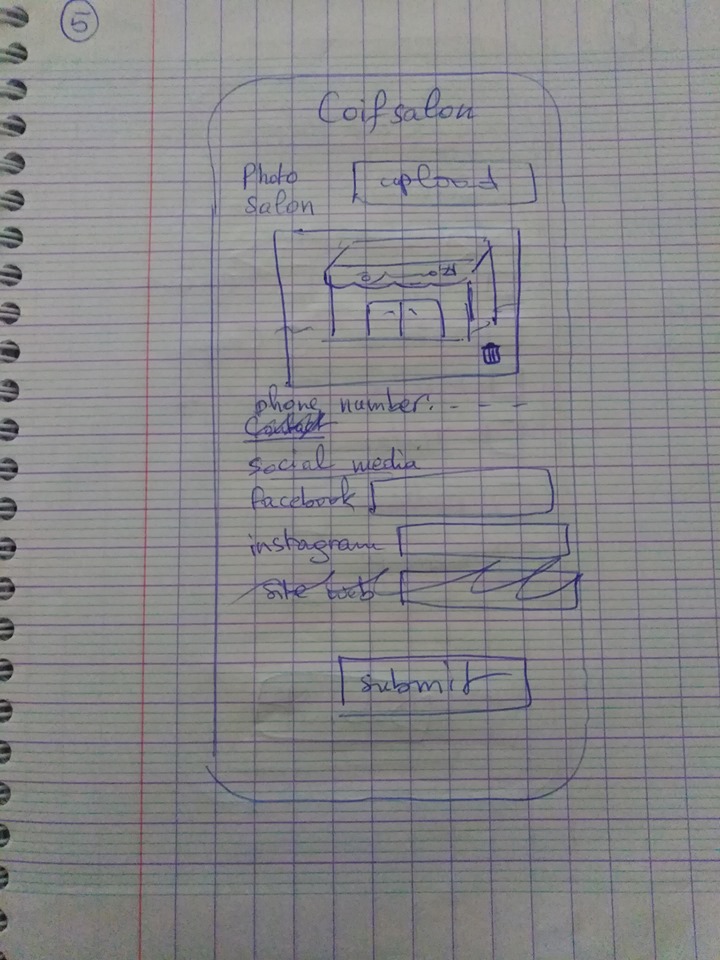 5
Coifsalon
Photo upload
Salon
phone number: - - -
Contact
social media
facebook
instagram
site web
submit